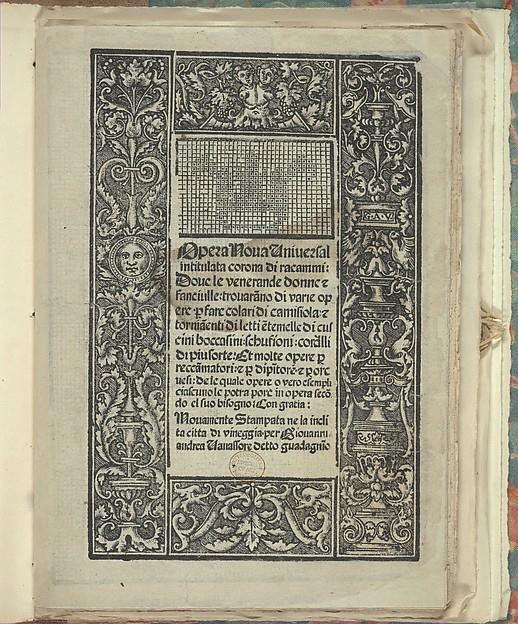 Opera Nova Universal
intitulata corona di racammi:
Doue le venerande donne ⁊
fanciulle: trovarãno di varie op
ere p̱ fare colari di camisiola: ⁊
torniaẽti di letti ẽternelle di cus
cini boccasini: schufioni: cordlli
di piu sorte: Et molte opere p̱
reccãmatori: ⁊ p̱ dipĩtore: ⁊ p̱ orc
uesi: de le quale opere o vero esempli
ciascuno le potra porе in opera secõ
do el suo bisogno: Con gratia:
Novamente Stampata ne la incli
ta citta di vineggia per Giovanni
andrea Vavassore detto guadagnĩo
G.A.V.